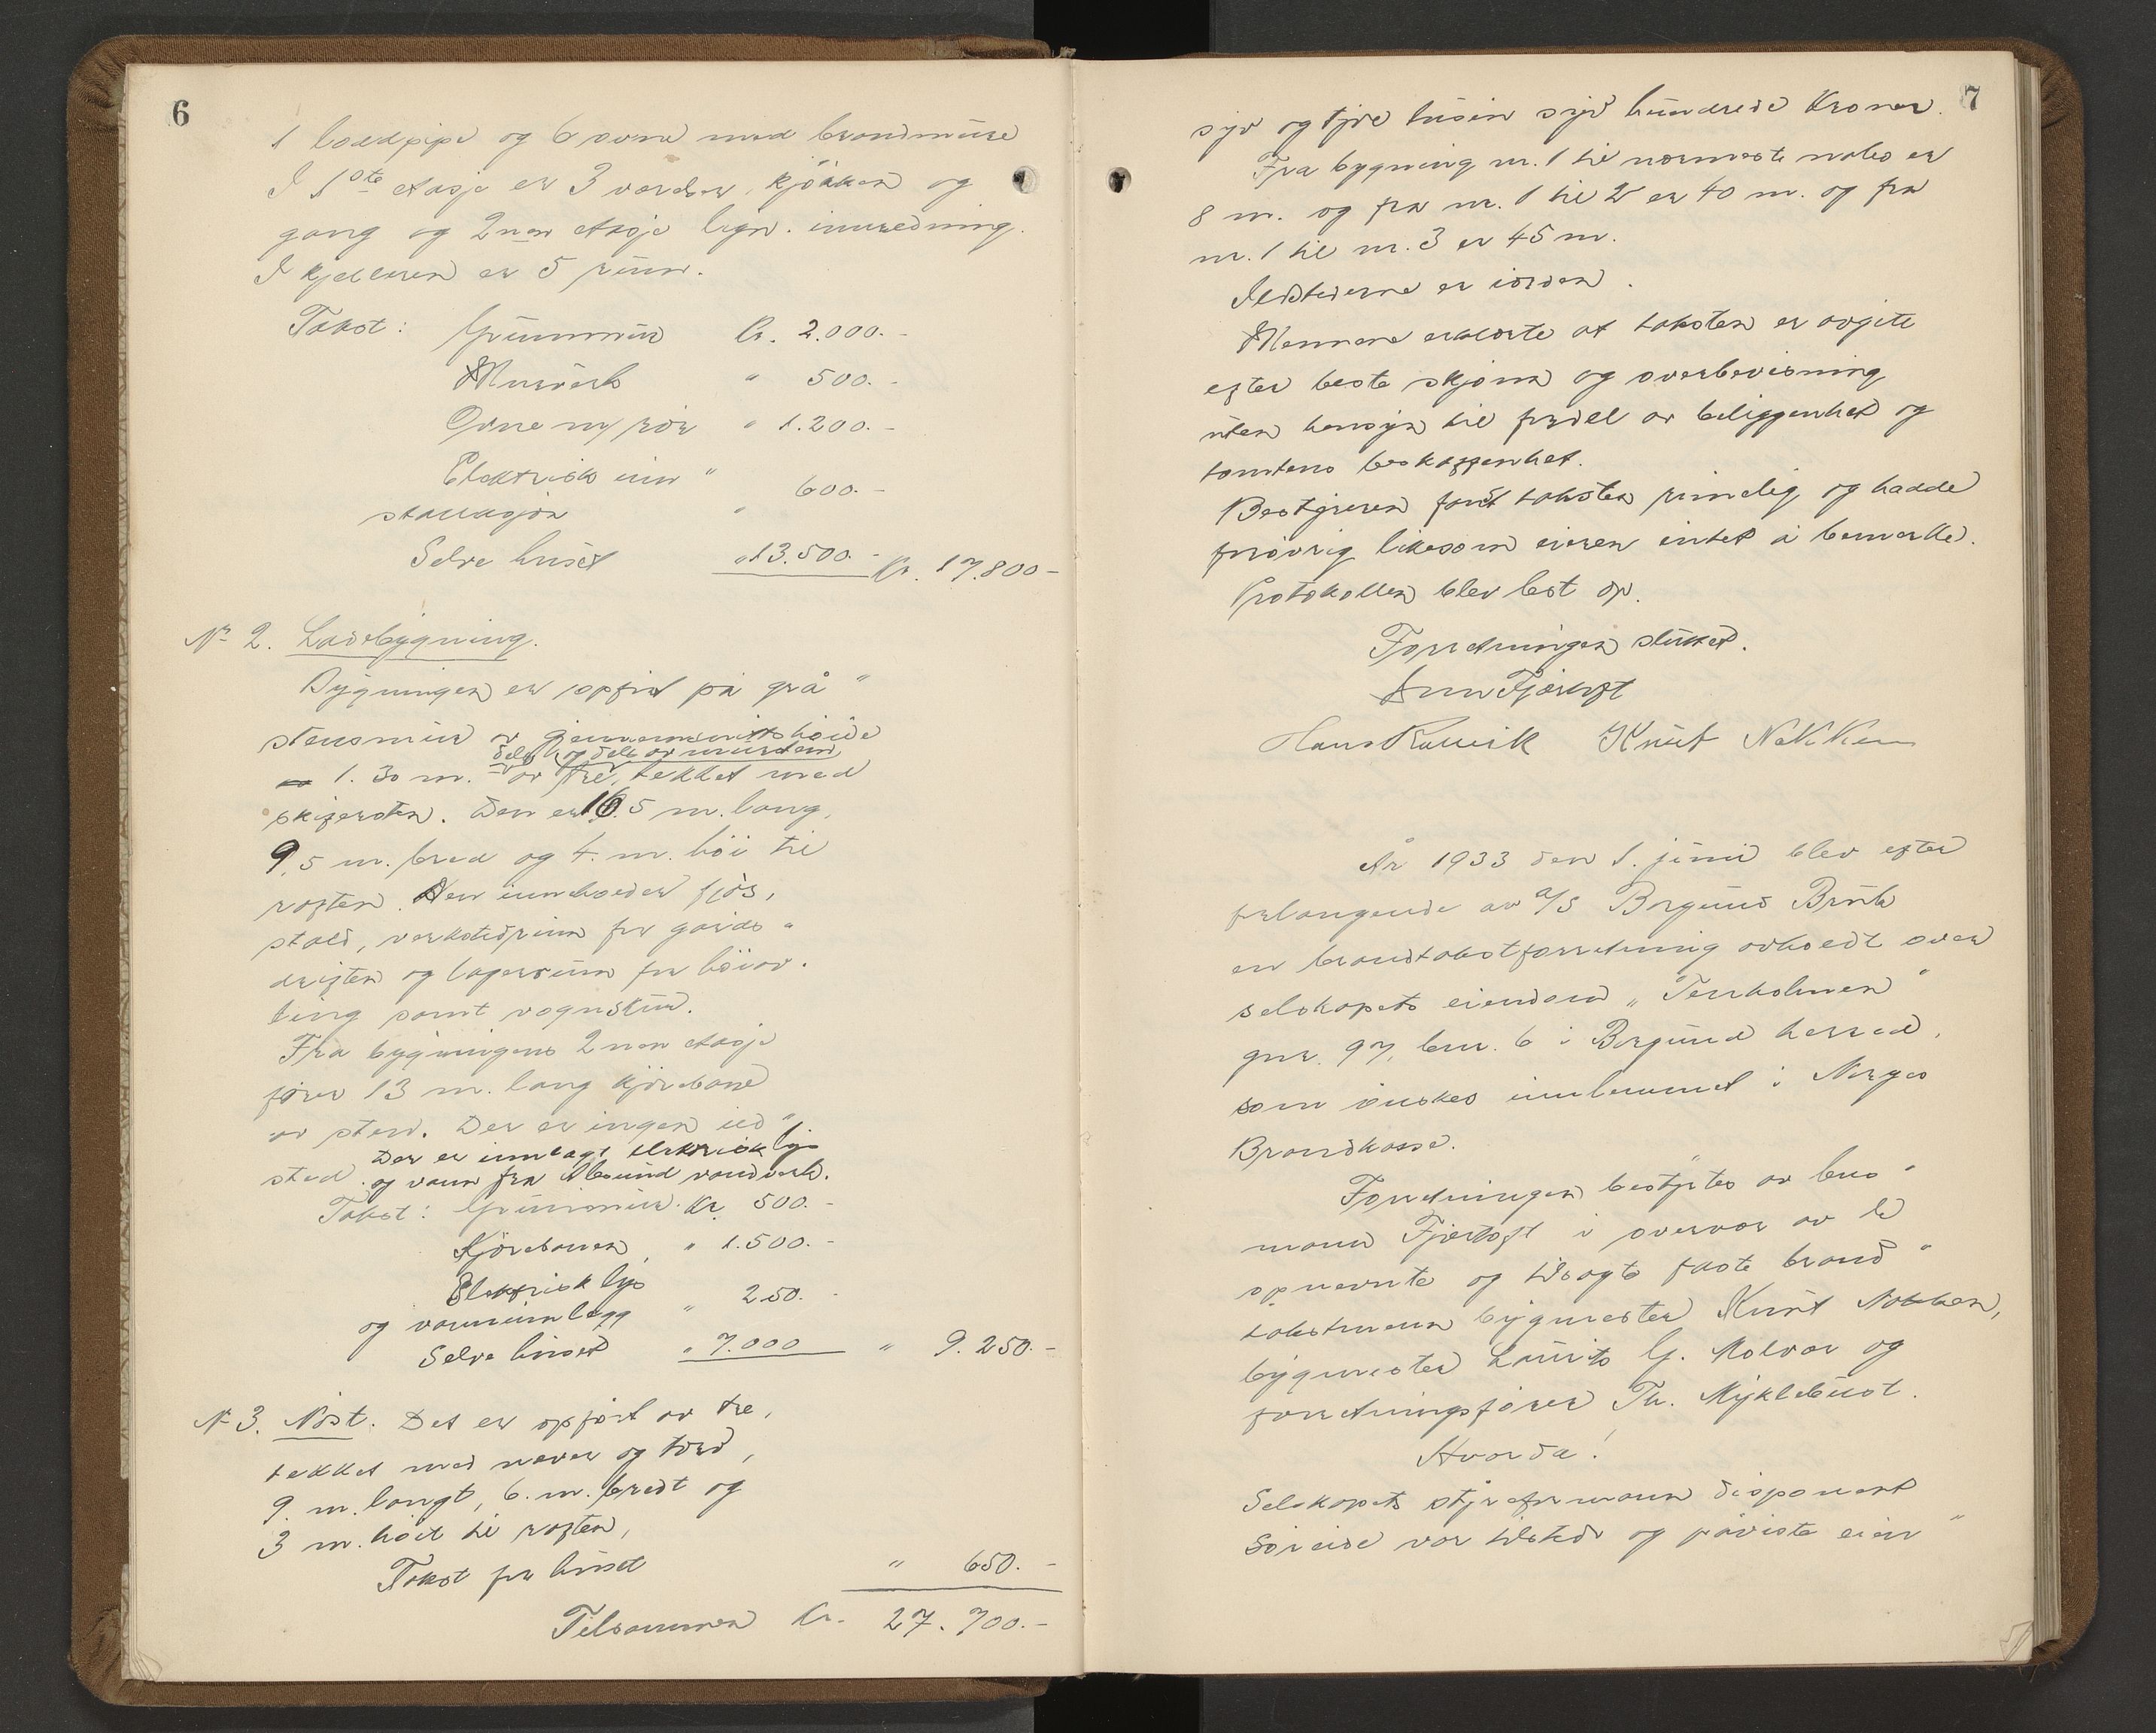 6
1 loddpipe og 6 ovne med brandmure
I 1ste etasje er 3 værelser, kjøkken og
gang og 2nen etasje lign. innredning.
I kjelleren er 5 rum.
Takst: Grunnmur Kr. 2.000.-
Murverk " 500.-
Ovne m/ rör " 1.200.-
Elektrisk inn"
stallasjon " 600.-
Selve huset " 13.500.- Kr. 17.800-
No 2. Ladebygning.
Bygningen er opfört på grå"
stensmur av gjennemsnittshöide
delv og delv av murstein
1.30 m. av tre, tekket med
skifersten. Den er 16.5 m. lang,
9,5 m. bred og 4. m. höi til
røsten. Den inneholder fjös,
stald, verkstedsrum for gårds-
driften og lagerrum for höiav.
ling samt vognskur.
Fra bygningens 2nen etasje
fører 13 m. lang kjörebane
av sten. Der er ingen ild"
Der er innlagt elektrisk lys
sted. og vann fra Ålesund vandverk.
Takst: Grunnmur. Kr. 500.-
Kjörebanen " 1.500.-
Elektrisk lys
og vanninnlegg " 250.-
Selve huset " 7.000 " 9.250.-
No 3. Nöst. Det er opfört av tre,
tekket med never og torv,
9. m. langt, 6. m. bredt og
3 m. höit til røsten,
Takst for huset " 650.-
Tilsammen Kr. 27.700.-
7
syv og tyve tusen syv hundrede Kroner.
Fra bygning nr. 1 til nærmeste nabo er
8 m. og fra nr. 1 til 2 er 40 m. og fra
nr. 1 til nr. 3 er 45 m.
Ildstederne er iorden.
Mennene erklærte at taksten er avgitt
efter beste skjønn og overbevisning
uten hensyn til fordel av beliggenhet og
tomtens beskaffenhet.
Bestyreren fant taksten rimelig og hadde
forövrig likesom eieren intet å bemerke.
Protokollen blev lest op.
Forretningen sluttet.
Fjørtoft
Hans Rønvik Knut Nakken
År 1933 den 1. juni blev efter
forlangende av A/S Borgund Bruk
en brandtakstforretning avholdt over
selskapets eiendom "Terkolmen"
gnr. 97, bnr. 6 i Borgund herred,
som önskes innlemmet i Norges
Brandkasse.
Forretningen bestyrtes av lens"
mann Fjørtoft i overvær av de
opnevnte og tilsagte faste brand"
takstmenn bygmester Knut Nakken,
bygmester Laurits G. Molvær og
forretningsfører Th. Myklebust.
Hvorda!
Selskapets styreformann disponent
Söreide var tilstede og påviste eien"